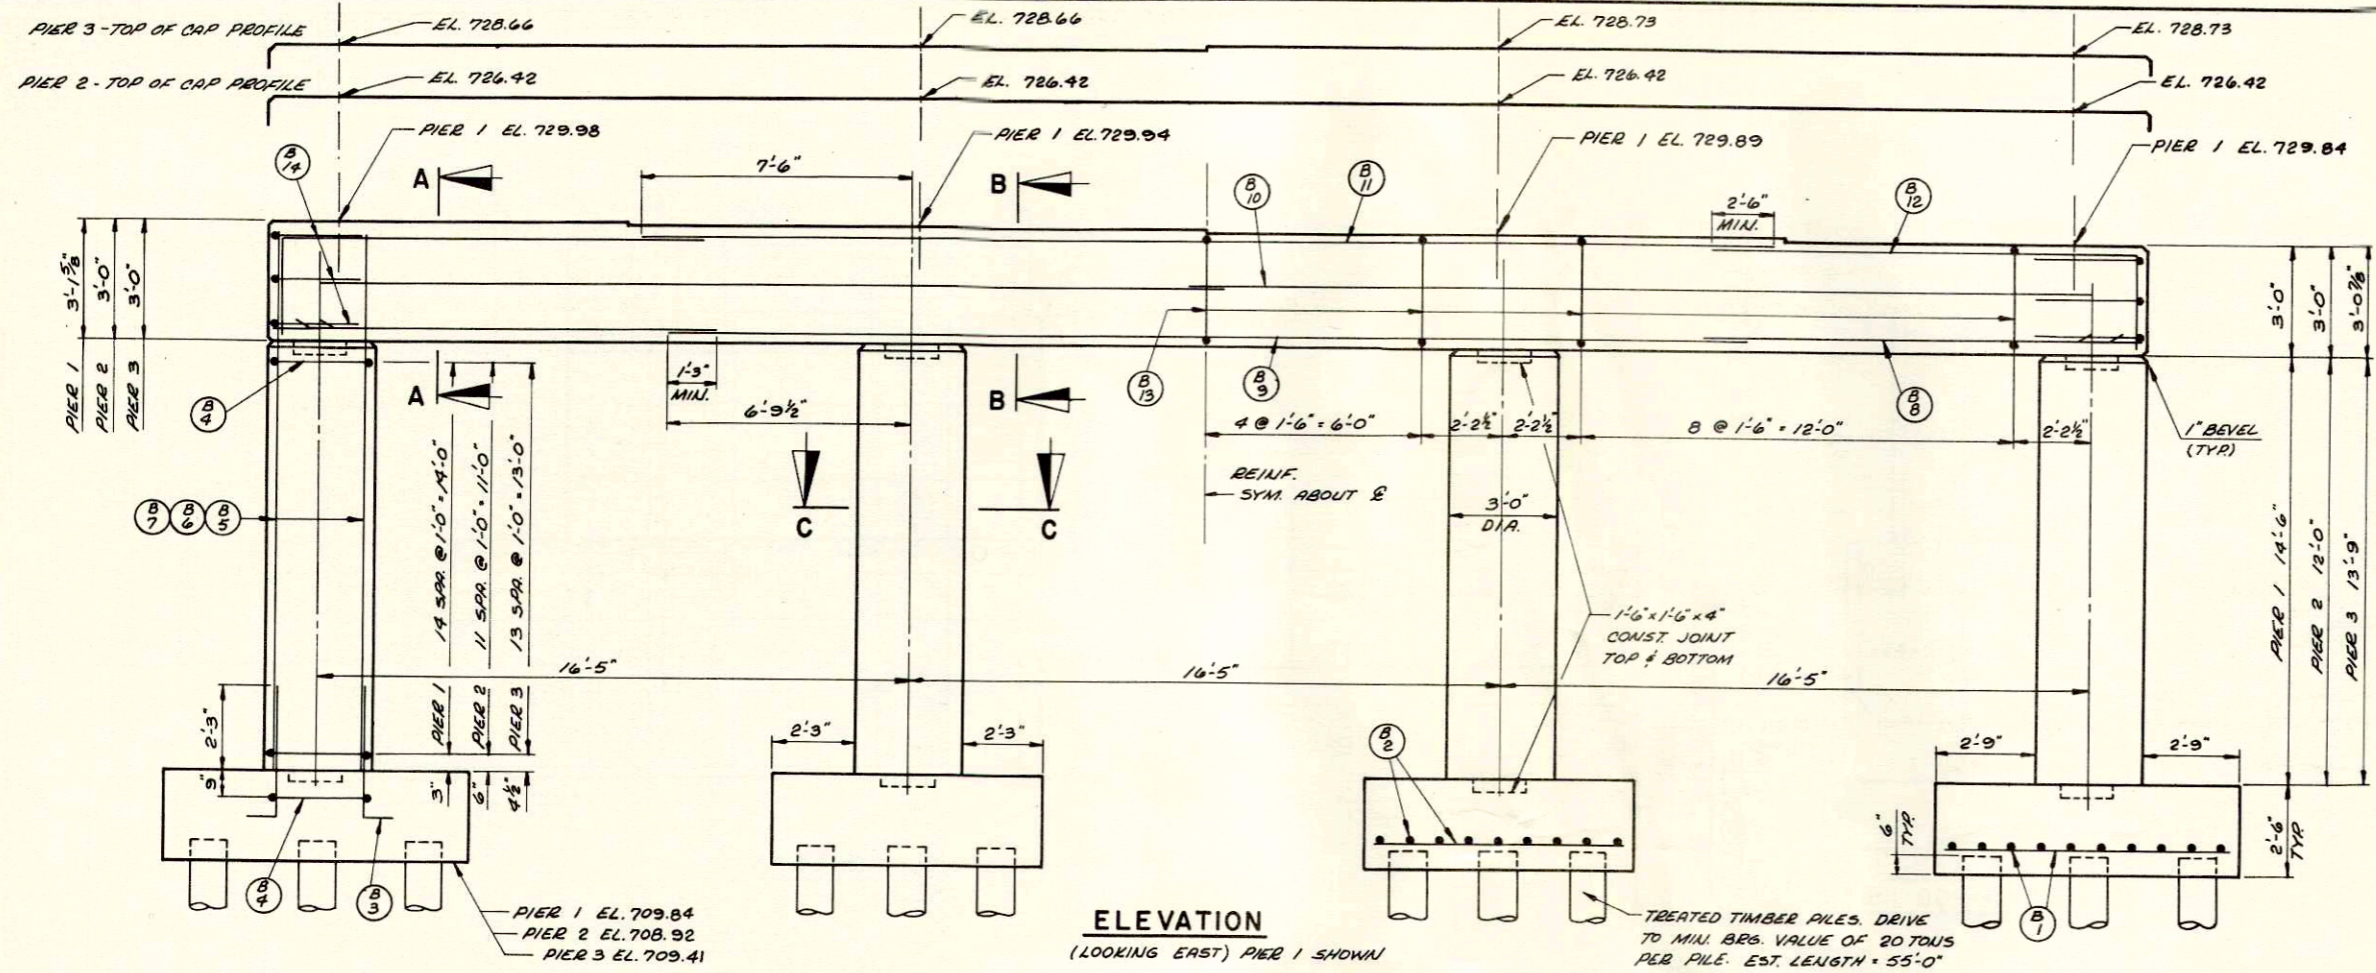 PIER 3 - TOP OF CAP PROFILE
EL. 728.66
EL. 728.66
EL. 728.73
EL. 728.73
PIER 2 - TOP OF CAP PROFILE
EL. 726.42
EL. 726.42
EL. 726.42
EL. 726.42
PIER 1 EL. 729.98
PIER 1 EL. 729.94
PIER 1 EL. 729.89
PIER 1 EL. 729.84
B 14
A
7'-6"
B
B 10
B 11
2'-6" MIN.
B 12
3'-1 5/8"
3'-0"
3'-0"
PIER 1
PIER 2
PIER 3
3'-0"
3'-0"
3'-0 7/8"
B 4
A
1'-3" MIN.
6'-9 1/2"
B
B 13
B 9
B 8
4 @ 1'-6" = 6'-0"
2'-2 1/2"
2'-2 1/2"
8 @ 1'-6" = 12'-0"
2'-2 1/2"
1" BEVEL
(TYP.)
REINF.
SYM. ABOUT ℄
B 7
B 6
B 5
C
C
3'-0"
DIA.
PIER 1 14 SPA. @ 1'-0" = 14'-0"
PIER 2 11 SPA. @ 1'-0" = 11'-0"
PIER 3 13 SPA. @ 1'-0" = 13'-0"
PIER 1 14'-6"
PIER 2 12'-0"
PIER 3 13'-9"
1'-6" x 1'-6" x 4"
CONST. JOINT
TOP & BOTTOM
16'-5"
16'-5"
16'-5"
2'-3"
9"
3"
6"
4 1/2"
2'-3"
2'-3"
B 2
2'-9"
2'-9"
6" TYP.
2'-6" TYP.
B 4
B 3
B 1
PIER 1 EL. 709.84
PIER 2 EL. 708.92
PIER 3 EL. 709.41
ELEVATION
(LOOKING EAST) PIER 1 SHOWN
TREATED TIMBER PILES. DRIVE
TO MIN. BRG. VALUE OF 20 TONS
PER PILE. EST. LENGTH = 55'-0"